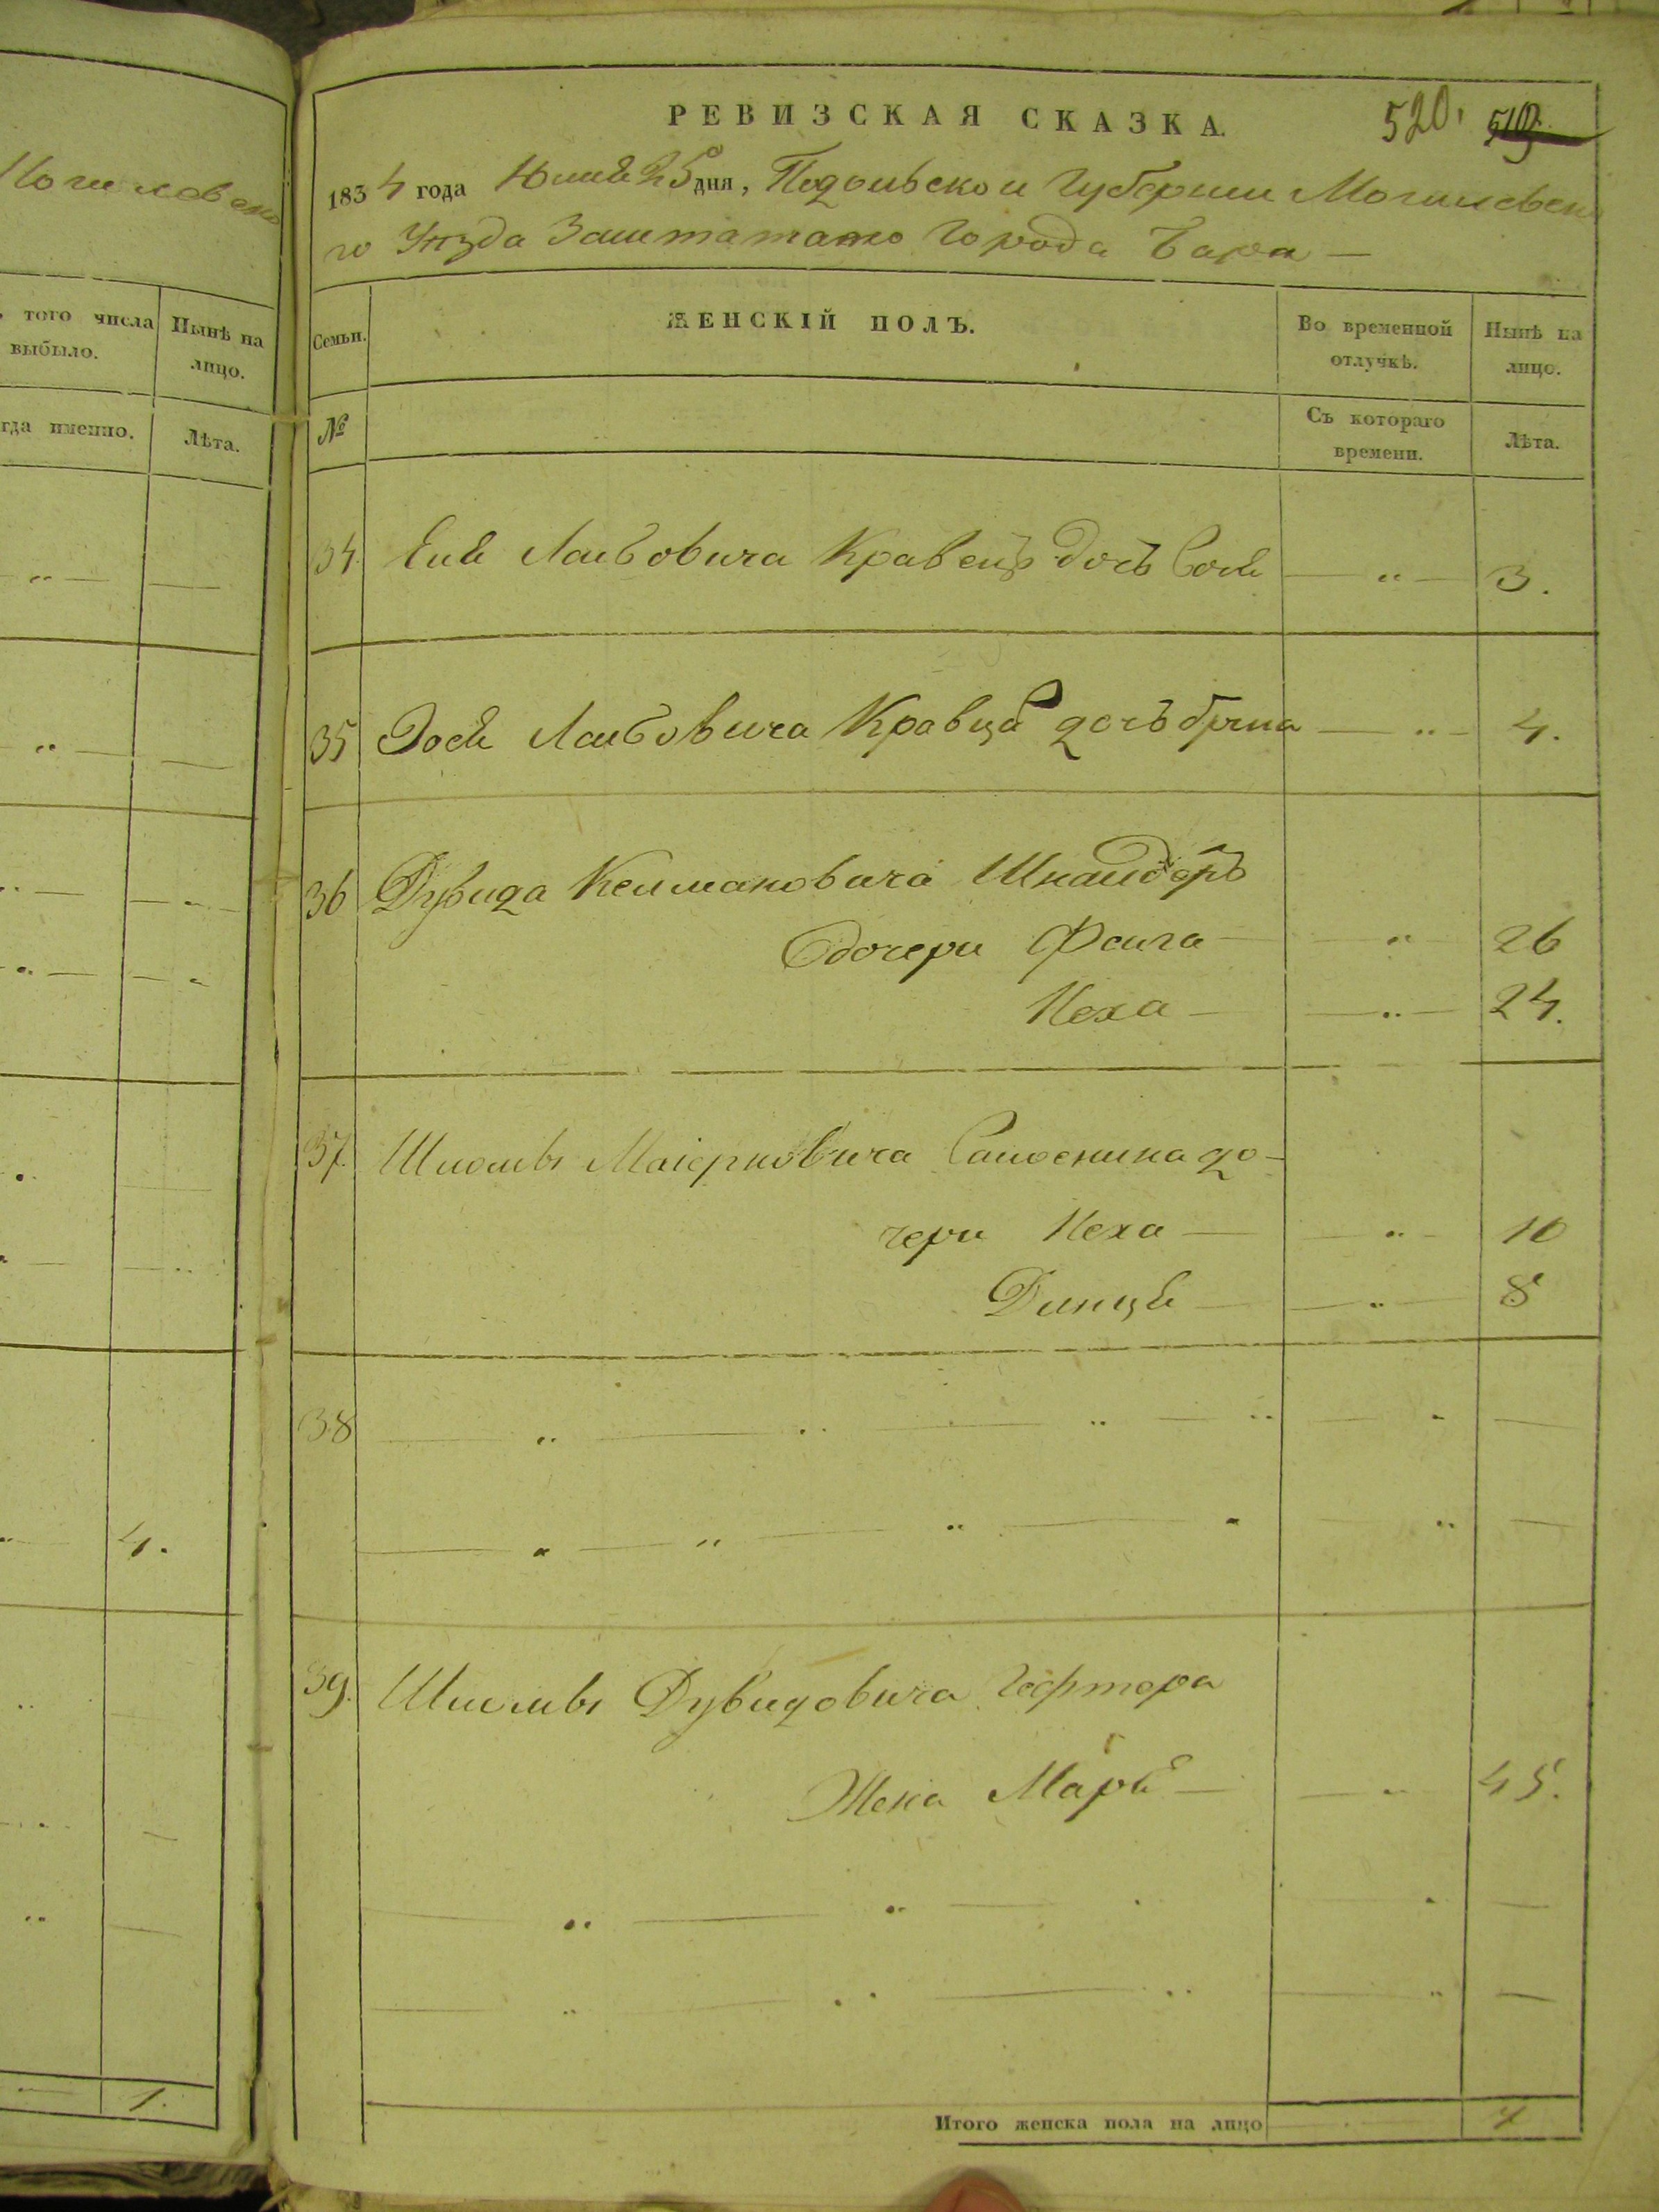 Могилевско
того числа
выбыло.
Нынѣ на
лицо.
гда именно.
Лѣта.
4.
1.
РЕВИЗСКАЯ СКАЗКА.
520.
519
1834 года Юлия 25 дня, Подольской Губернии Могилевска
го Уезда Заштатного Города Бара —
Семьи.
ЖЕНСКІЙ ПОЛЪ.
Во временной
отлучкѣ.
Нынѣ на
лицо.
№
Съ котораго
времени.
Лѣта.
34. Лейбовича Кравец дочь — „ — 3.
35 Лейбовича Кравца дочь — „ — 4.
36 Дувида Келмановича Шнайдеръ
дочери Файга — „ — 26
Неха — „ — 24.
37. Шломы Маіеровича до-
чери Неха — „ — 10
Динця — „ — 8
38
39. Шломы Дувидовича Гефтера
Жена Маря — „ — 45.
Итого женска пола на лицо 7